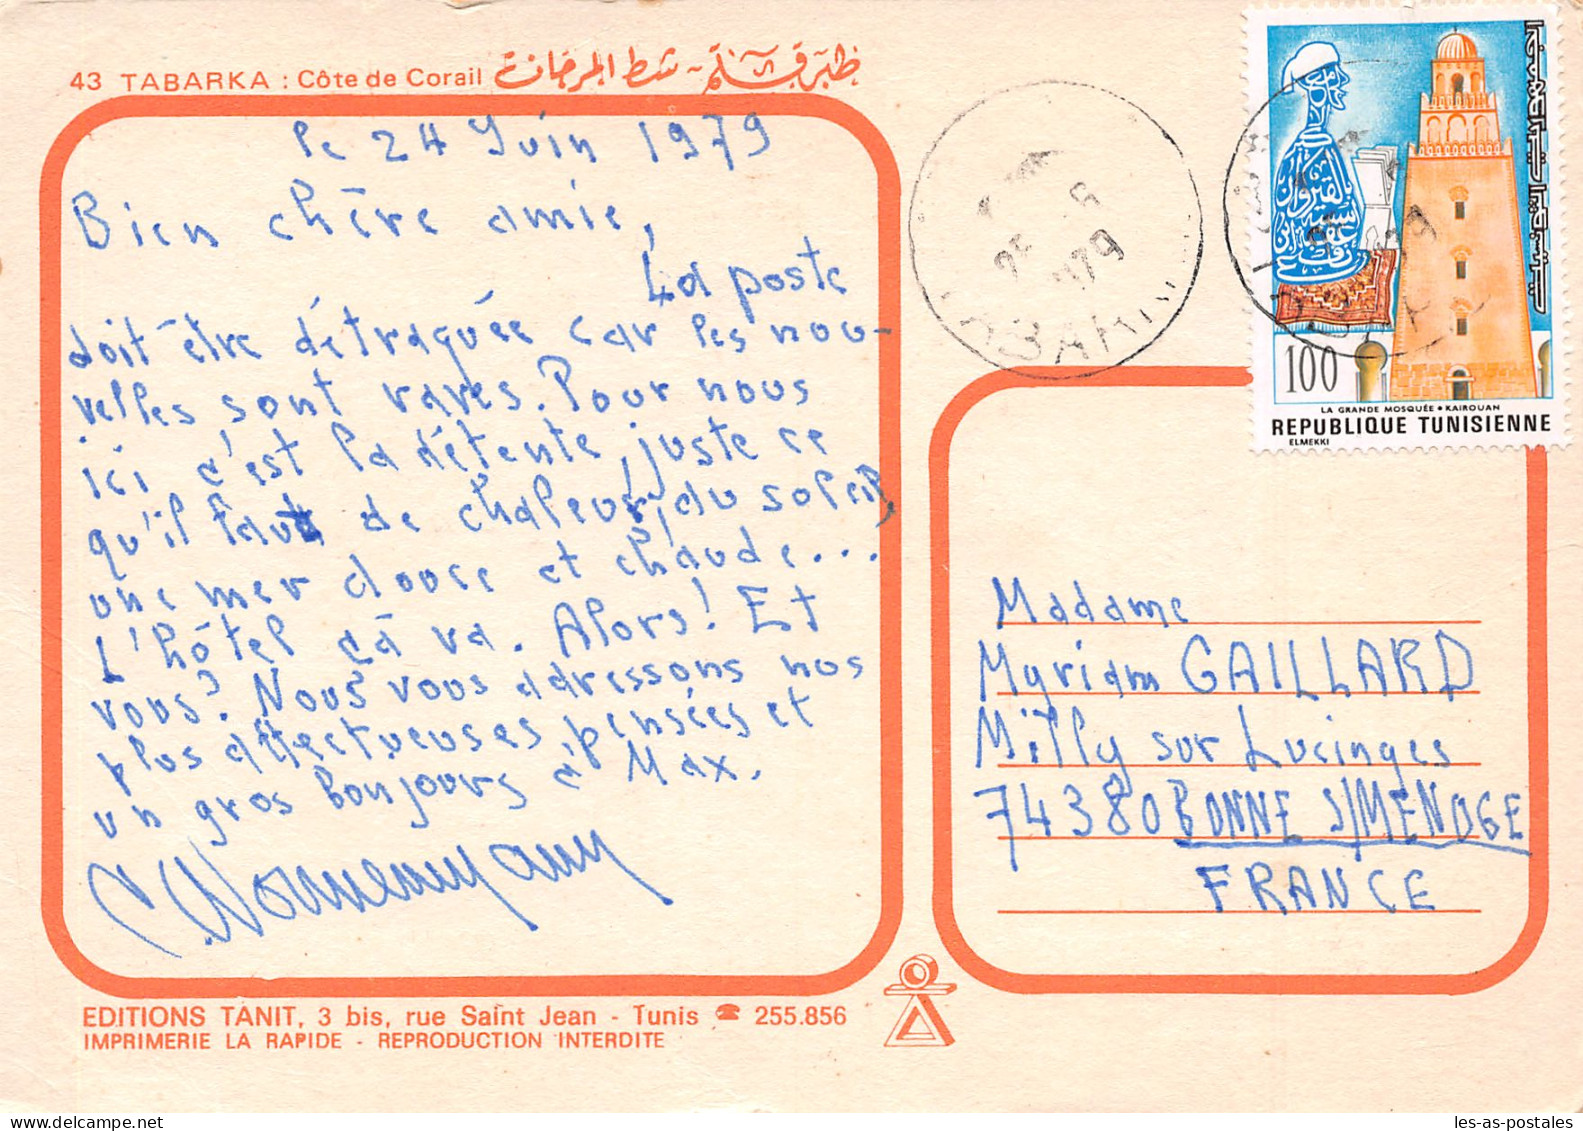 43 TABARKA : Côte de Corail طبرقة - شط المرجان
le 24 Juin 1979
Bien chère amie,
La poste
doit être détraquée car les nou-
velles sont rares. Pour nous
ici c'est la détente, juste ce
qu'il faut de chaleur, du soleil,
une mer douce et chaude...
L'hôtel çà va. Alors! Et
vous? Nous vous adressons nos
plus affectueuses pensées et
un gros bonjours à Max.
EDITIONS TANIT, 3 bis, rue Saint Jean - Tunis ☎ 255.856
IMPRIMERIE LA RAPIDE - REPRODUCTION INTERDITE
25 6
1979
TABARKA
الجمهورية التونسية
100
LA GRANDE MOSQUÉE • KAIROUAN
REPUBLIQUE TUNISIENNE
ELMEKKI
Madame
Myriam GAILLARD
Milly sur Lucinges
74380 BONNE S/MENOGE
FRANCE
les-as-postales